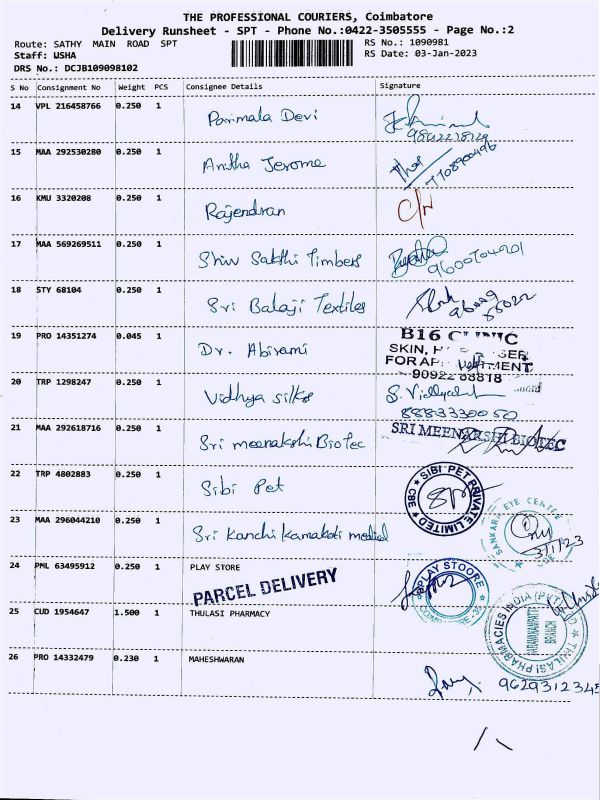 THE PROFESSIONAL COURIERS, Coimbatore
Delivery Runsheet - SPT - Phone No.:0422-3505555 - Page No.:2
Route: SATHY MAIN ROAD SPT RS No.: 1090981
Staff: USHA RS Date: 03-Jan-2023
DRS No.: DCJB109098102
S No Consignment No Weight PCS Consignee Details Signature
14 VPL 216458766 0.250 1 Parimala Devi
15 MAA 292530280 0.250 1 Anitha Jerome
7708900496
16 KMU 3320208 0.250 1 Rajendran
17 MAA 569269511 0.250 1 Shiv Sakthi Timbers
9600704901
18 STY 68104 0.250 1 Sri Balaji Textiles
19 PRO 14351274 0.045 1 Dr. Abirami
B16 CLINIC
SKIN,
FOR
20 TRP 1298247 0.250 1 Vidhya silks S. Vidhya
8883330050
21 MAA 292618716 0.250 1 Sri meenakshi Biotec SRI MEENAKSHI BIOTEC
22 TRP 4802883 0.250 1 Sibi Pet
SIBI PET PRIVATE LIMITED
CBE
23 MAA 296044210 0.250 1 Sri Kanchi Kamakoti medical
SANKARA EYE CENTRE
3/1/23
24 PML 63495912 0.250 1 PLAY STORE
PLAY STOORE
PARCEL DELIVERY
25 CUD 1954647 1.500 1 THULASI PHARMACY
THULASI PHARMACIES INDIA (PVT) LTD
BRANCH
26 PRO 14332479 0.230 1 MAHESHWARAN
9629312345